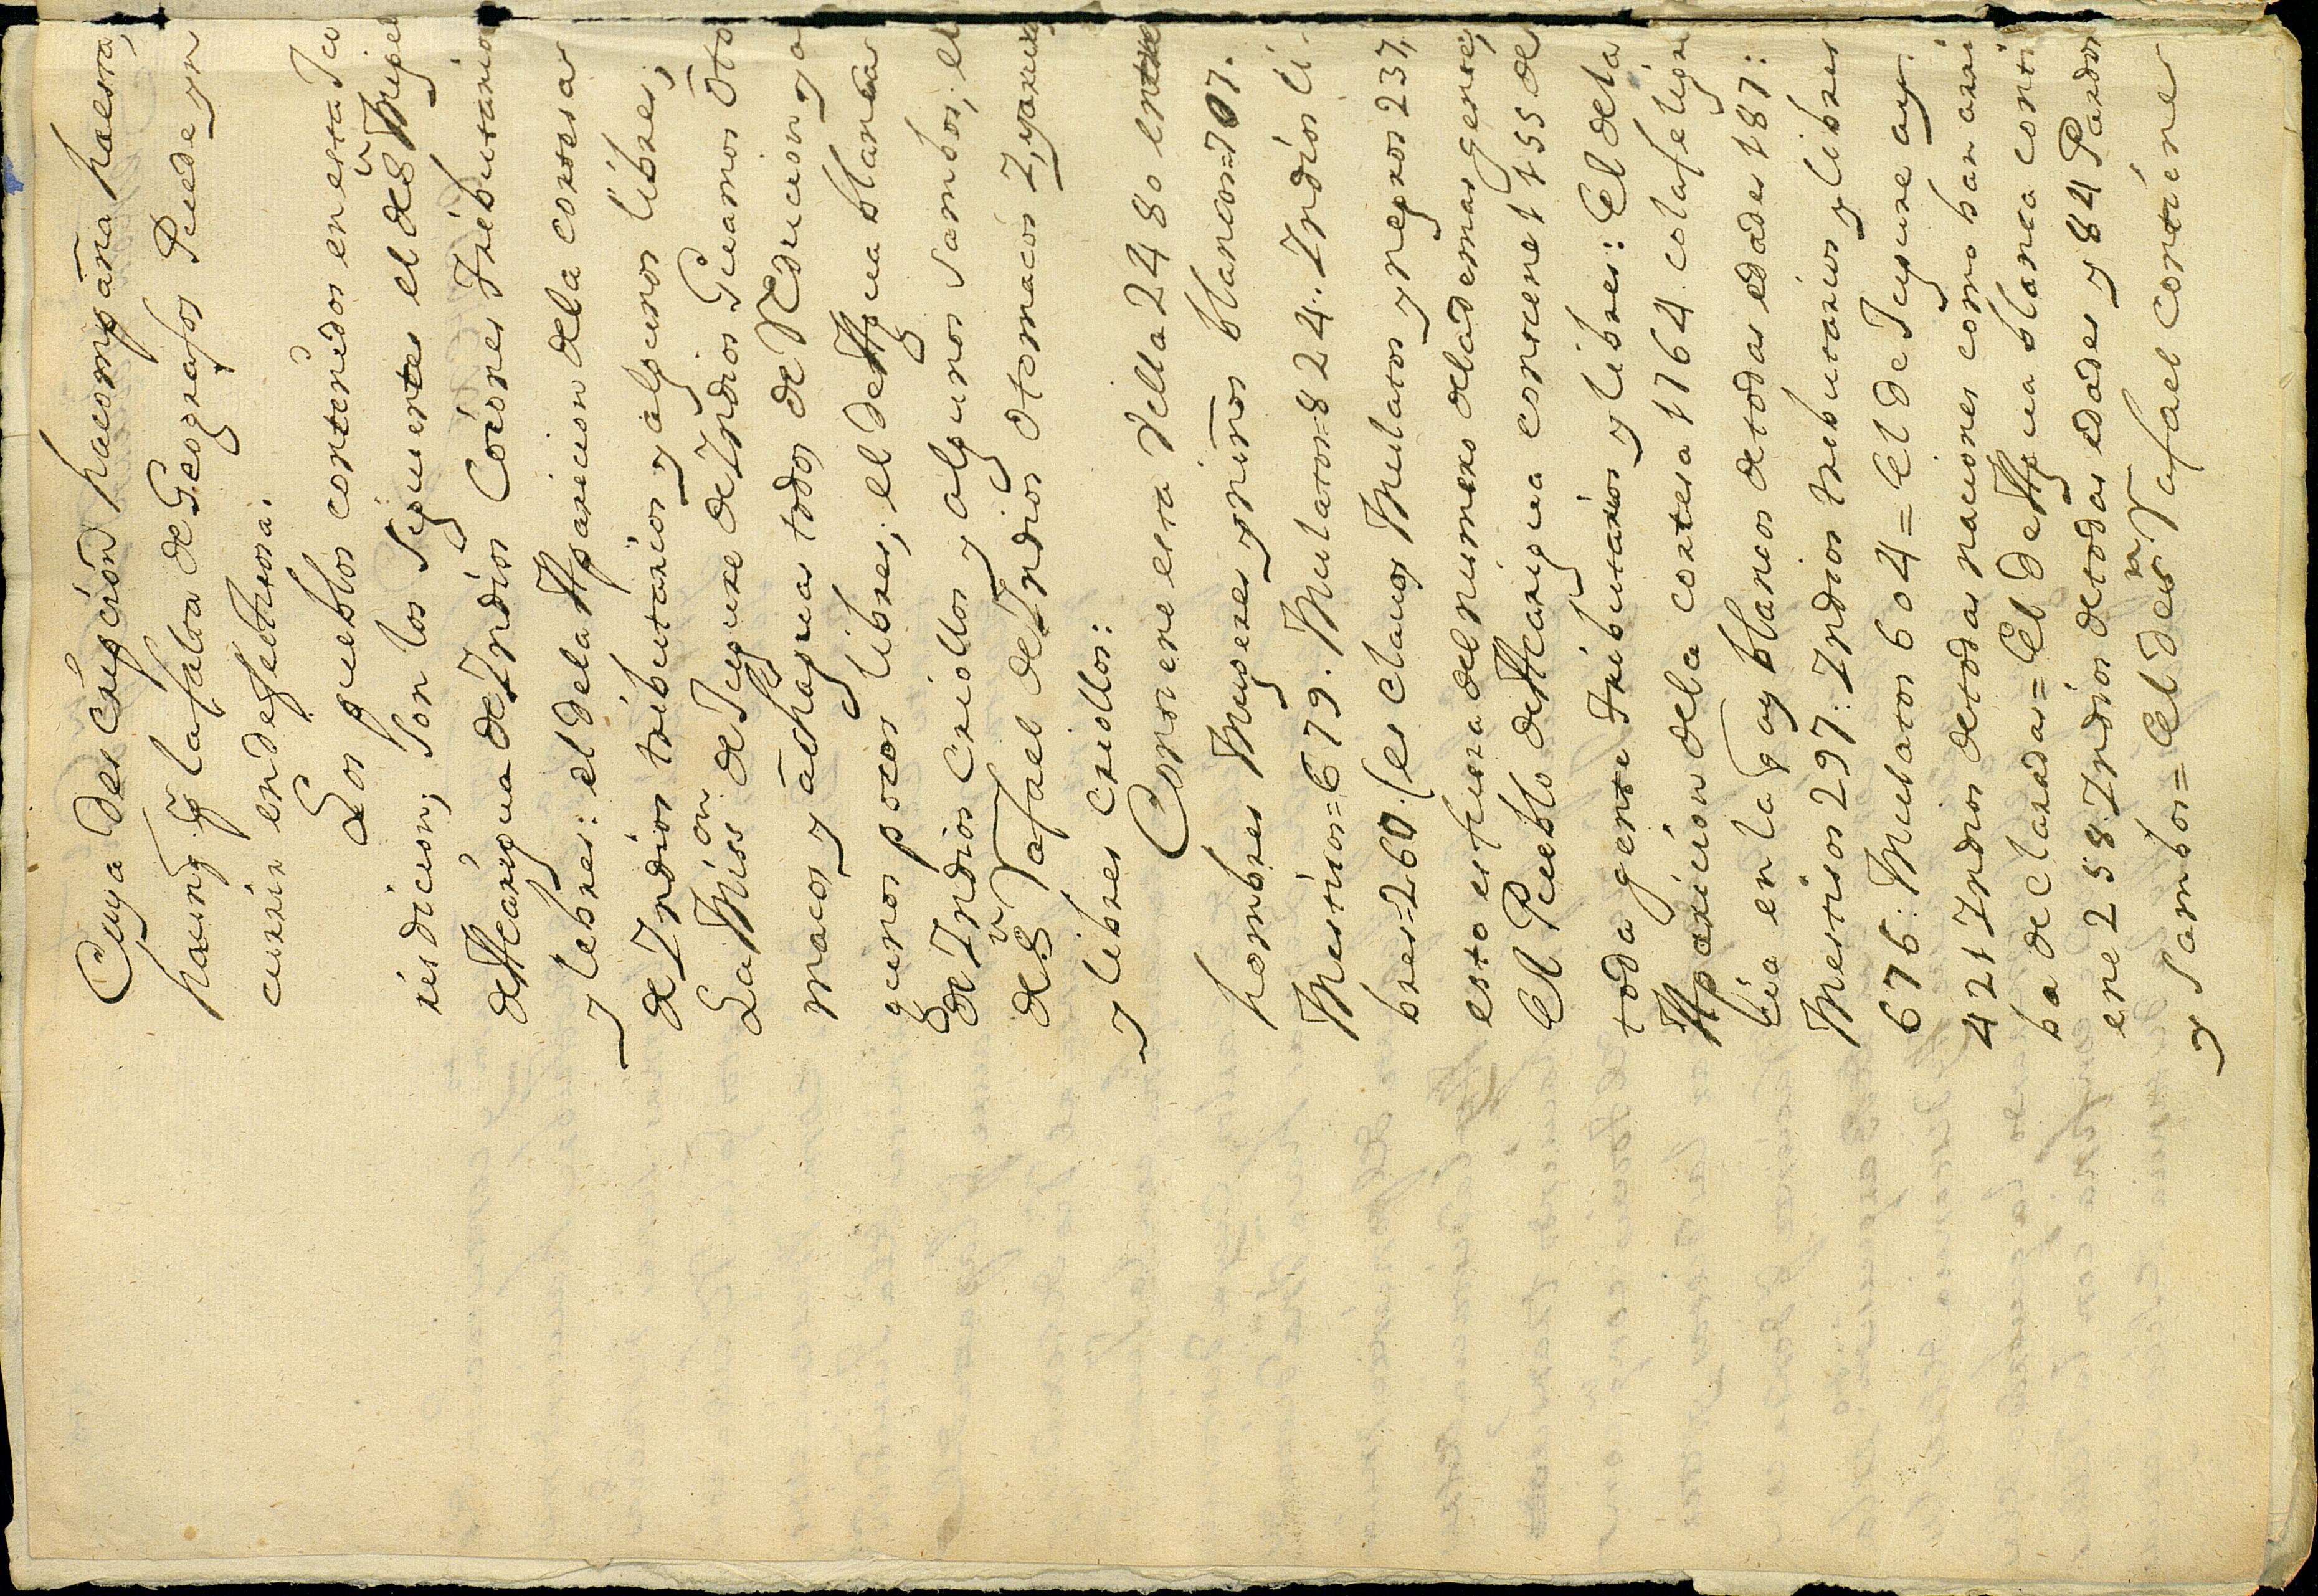 Cuya descripción hacompaña haesta,
haund q̃ lafalta de Geografos Puede yn
currir en defectuosa.
Los pueblos contenidos en esta Ju
risdicion, son los siguientes el de Sn Migel
de Araigua de Indios Coiones Tributarios
y lebres: el dela Aparicion dela corteza
de Indios tributarios y algunos libres;
La Misson de Tupure de Indios Guamos Oto
macos y achagua todos de Reducion y a
gunos pocos libres; el de Agua blanca
de Indios Criollos y algunos Sambos, el
de Sn Rafael de Indios Otomacos I, yaruros
y libres criollos:
Contiene esta Villa 2480 entre
hombres Mugeres y niños blancos=707.
Mestisos=679. Mulatos=824. Indios li-
bres=260. (esclavos Mulatos y negros 237,
esto es fuera del numero dela demas gente,
El Pueblo de Araigua contiene 1155 de
toda gente Tributarios y libres: El dela
Aparicion dela cortesa 1764 cotafeligre
cia en la q ay blancos de todas edades 187:
Mestisos 297: Indios tributarios y libres
676: Mulatos 604 = El de Tupure ay
421 Indios de todas naciones como han arri
ba declaradas = El de Agua blanca conti
ene 258. Indios de todas edades y 84 Pardos
y Sambos = El de Sn Rafael contiene